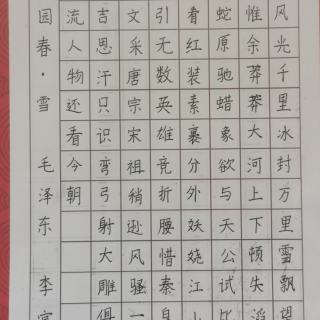 风光千里冰封万里雪飘望
惟余莽莽大河上下顿失滔
蛇原驰蜡象欲与天公试比
看红装素裹分外妖娆江山
引无数英雄竞折腰惜秦皇
文采唐宗宋祖稍逊风骚一
吉思汗只识弯弓射大雕俱
流人物还看今朝
园春·雪 毛泽东 李